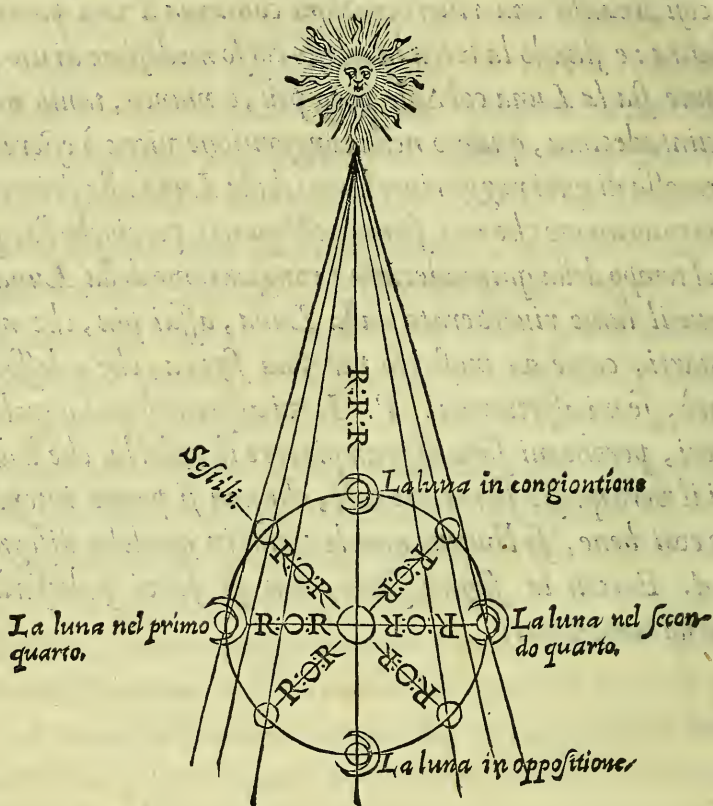 R:R:R
Sestili.
La luna in congiontione
R:O:R
R:O:R
La luna nel primo
quarto.
R:O:R
R:O:R
La luna nel secon-
do quarto.
R:O:R
R:O:R
La luna in oppositione